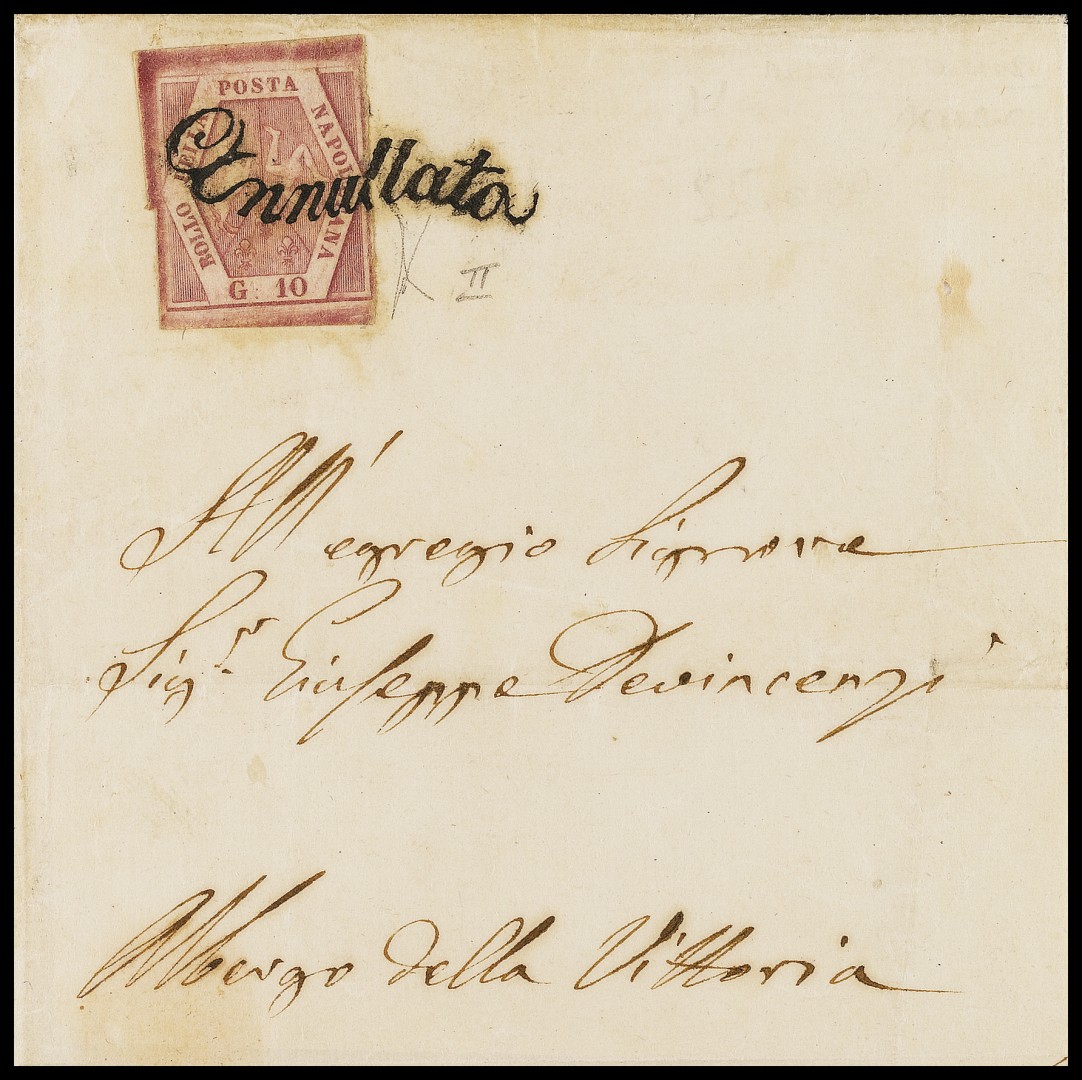 POSTA
NAPOLETANA
BOLLO DELLA
G. 10
Annullata
II
All' egregio Signore
Sigr. Giuseppe Devincenzi
Albergo della Vittoria